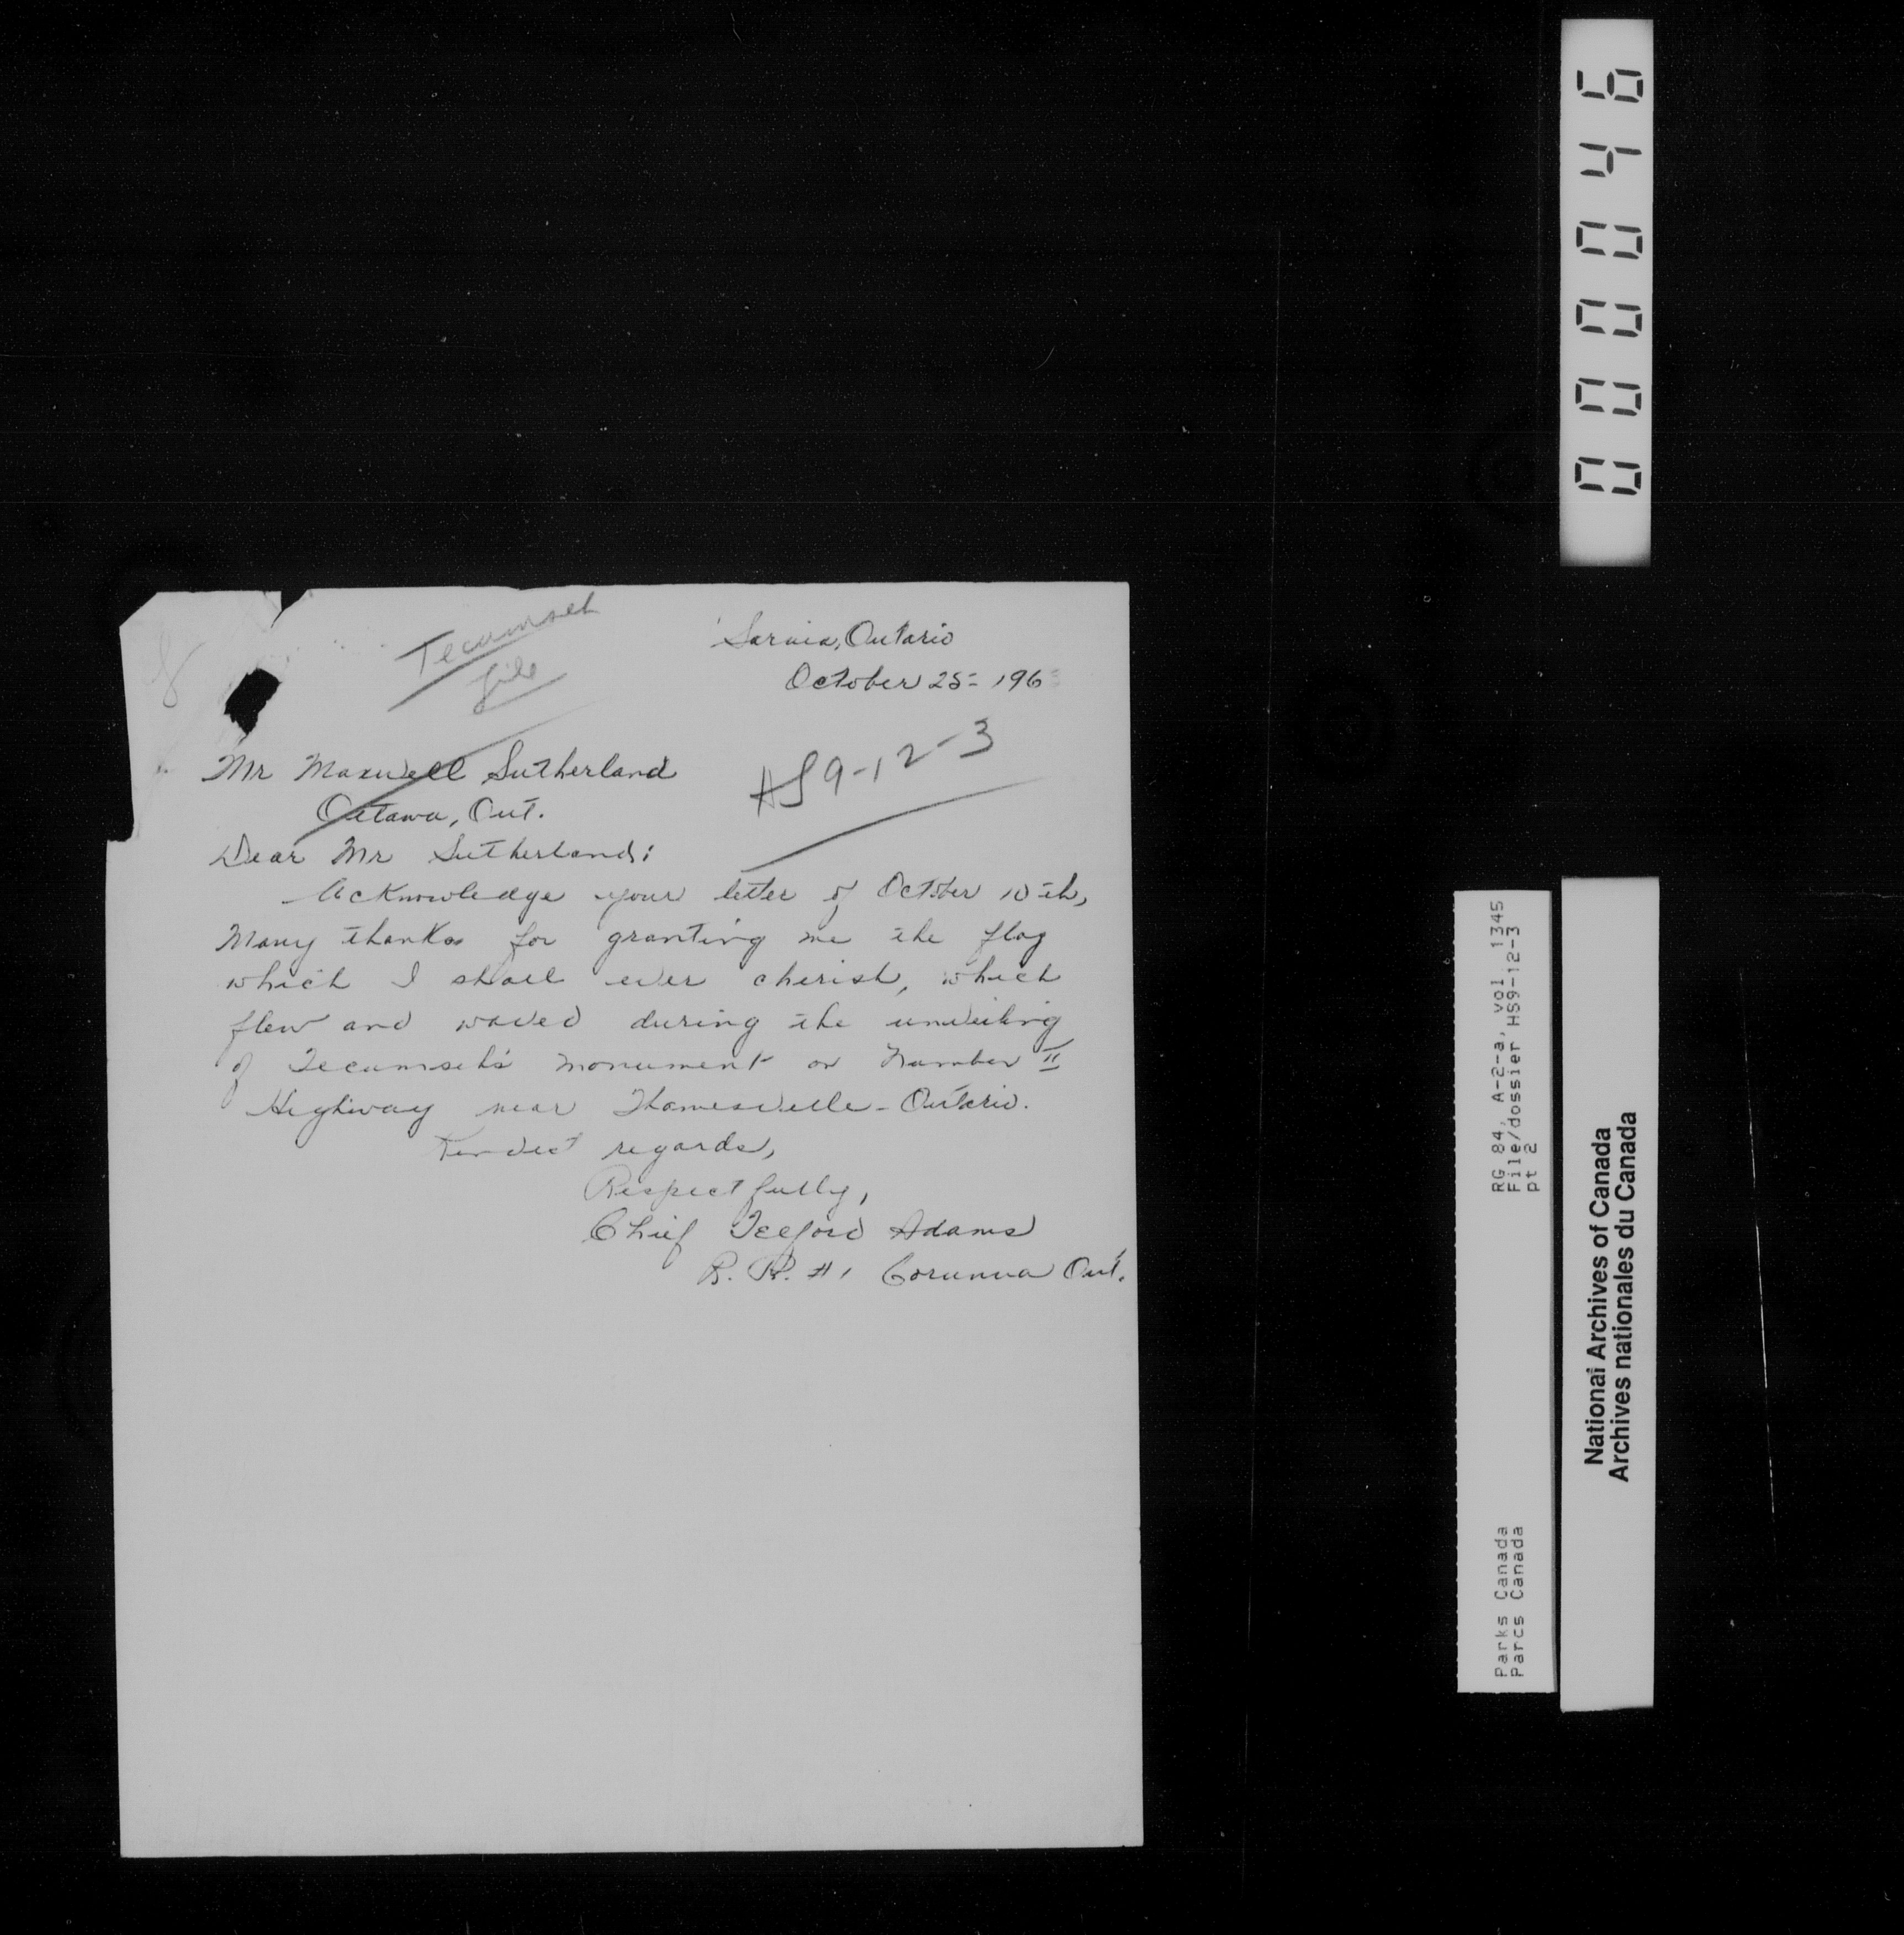 Tecumseh
file
Sarnia, Ontario
October 25- 196
HS 9-12-3
Mr Maxwell Sutherland
Ottawa, Ont.
Dear Mr Sutherland:
Acknowledge your letter of October 10th,
Many thanks for granting me the flag
which I shall ever cherish, which
flew and waved during the unveiling
of Tecumseh's monument on Number II
Highway near Thamesville - Ontario.
Kindest regards,
Respectfully,
Chief Telford Adams
R. R. #1 Corunna Ont.
000046
RG 84, A-2-a, vol. 1345
File/dossier HS9-12-3
pt 2
Parks Canada
Parcs Canada
National Archives of Canada
Archives nationales du Canada